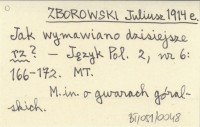 ZBOROWSKI Juliusz 1914 e.
Jak wymawiano dzisiejsze
rz? – Język Pol. 2, nr 6:
166-172. MT.
M.in. o gwarach góral-
skich.
Bi/051/0048